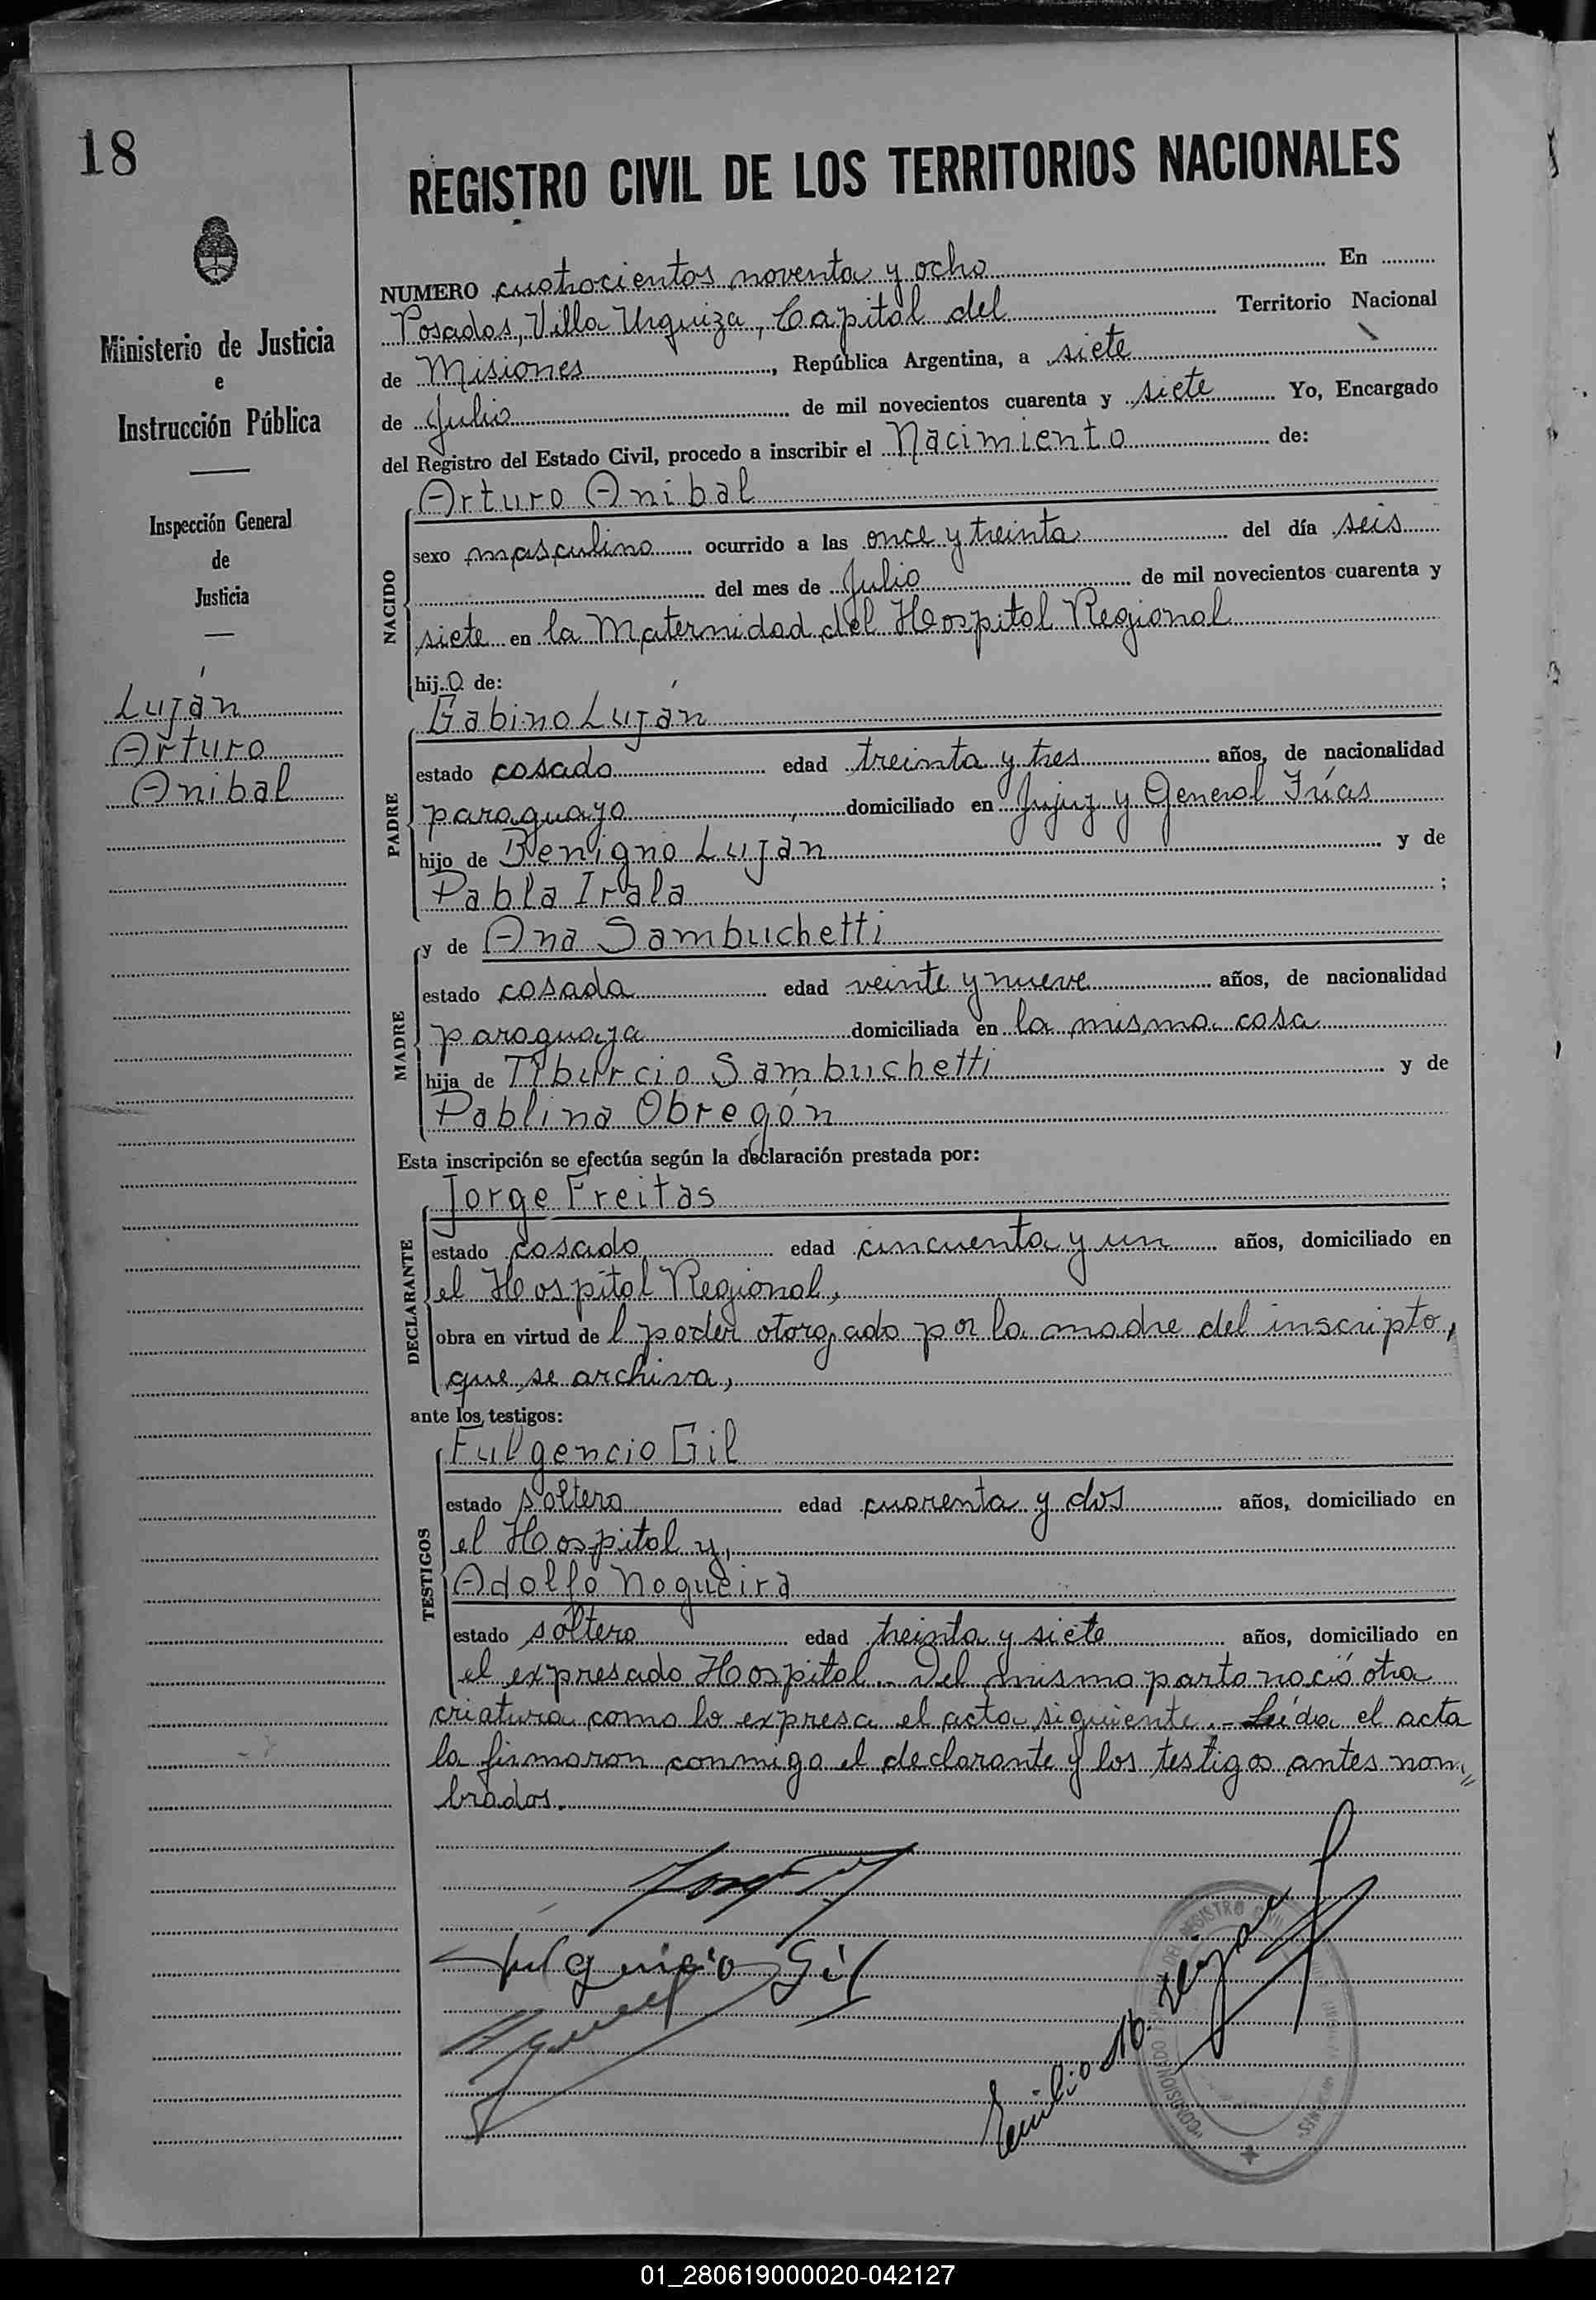 18
REGISTRO CIVIL DE LOS TERRITORIOS NACIONALES
Ministerio de Justicia
e
Instrucción Pública
Inspección General
de
Justicia
Luján
Arturo
Anibal
NUMERO cuatrocientos noventa y ocho En
Posadas, Villa Urquiza, Capital del Territorio Nacional
de Misiones, República Argentina, a siete
de Julio de mil novecientos cuarenta y siete Yo, Encargado
del Registro del Estado Civil, procedo a inscribir el Nacimiento de:
NACIDO
Arturo Anibal
sexo masculino ocurrido a las once y treinta del día seis
del mes de Julio de mil novecientos cuarenta y
siete en la Maternidad del Hospital Regional
hijo de:
PADRE
Gabino Luján
estado casado edad treinta y tres años, de nacionalidad
paraguayo, domiciliado en Jujuy y General Frías
hijo de Benigno Luján y de
Pabla Irala;
MADRE
y de Ana Sambuchetti
estado casada edad veinte y nueve años, de nacionalidad
paraguaya domiciliada en la misma casa
hija de Tiburcio Sambuchetti y de
Pablina Obregón
Esta inscripción se efectúa según la declaración prestada por:
DECLARANTE
Jorge Freitas
estado casado edad cincuenta y un años, domiciliado en
el Hospital Regional,
obra en virtud del poder otorgado por la madre del inscripto,
que se archiva,
ante los testigos:
TESTIGOS
Fulgencio Gil
estado soltero edad cuarenta y dos años, domiciliado en
el Hospital y,
Adolfo Nogueira
estado soltero edad treinta y siete años, domiciliado en
el expresado Hospital.. Del mismo parto nació otra
criatura como lo expresa el acta siguiente.- Leída el acta
la firmaron conmigo el declarante y los testigos antes nom"
brados.
Fulgencio Gil
Emilio
DEL REGISTRO CIVIL
COMISIONADO
01_280619000020-042127